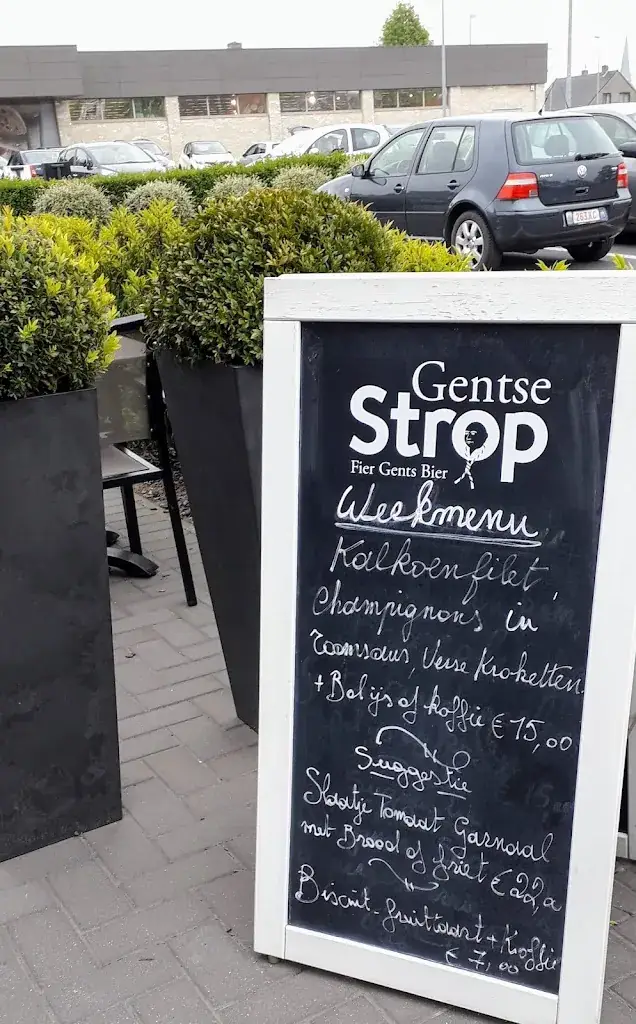 Gentse
Strop
Fier Gents Bier
Weekmenu
Kalkoenfilet,
Champignons in
roomsaus, Verse Kroketten
+ Bolijs of koffie € 15,00
Suggestie
Slaatje Tomaat Garnaal
met Brood of friet € 22,00
Biscuit-fruittaart + Koffie
€ 7,00